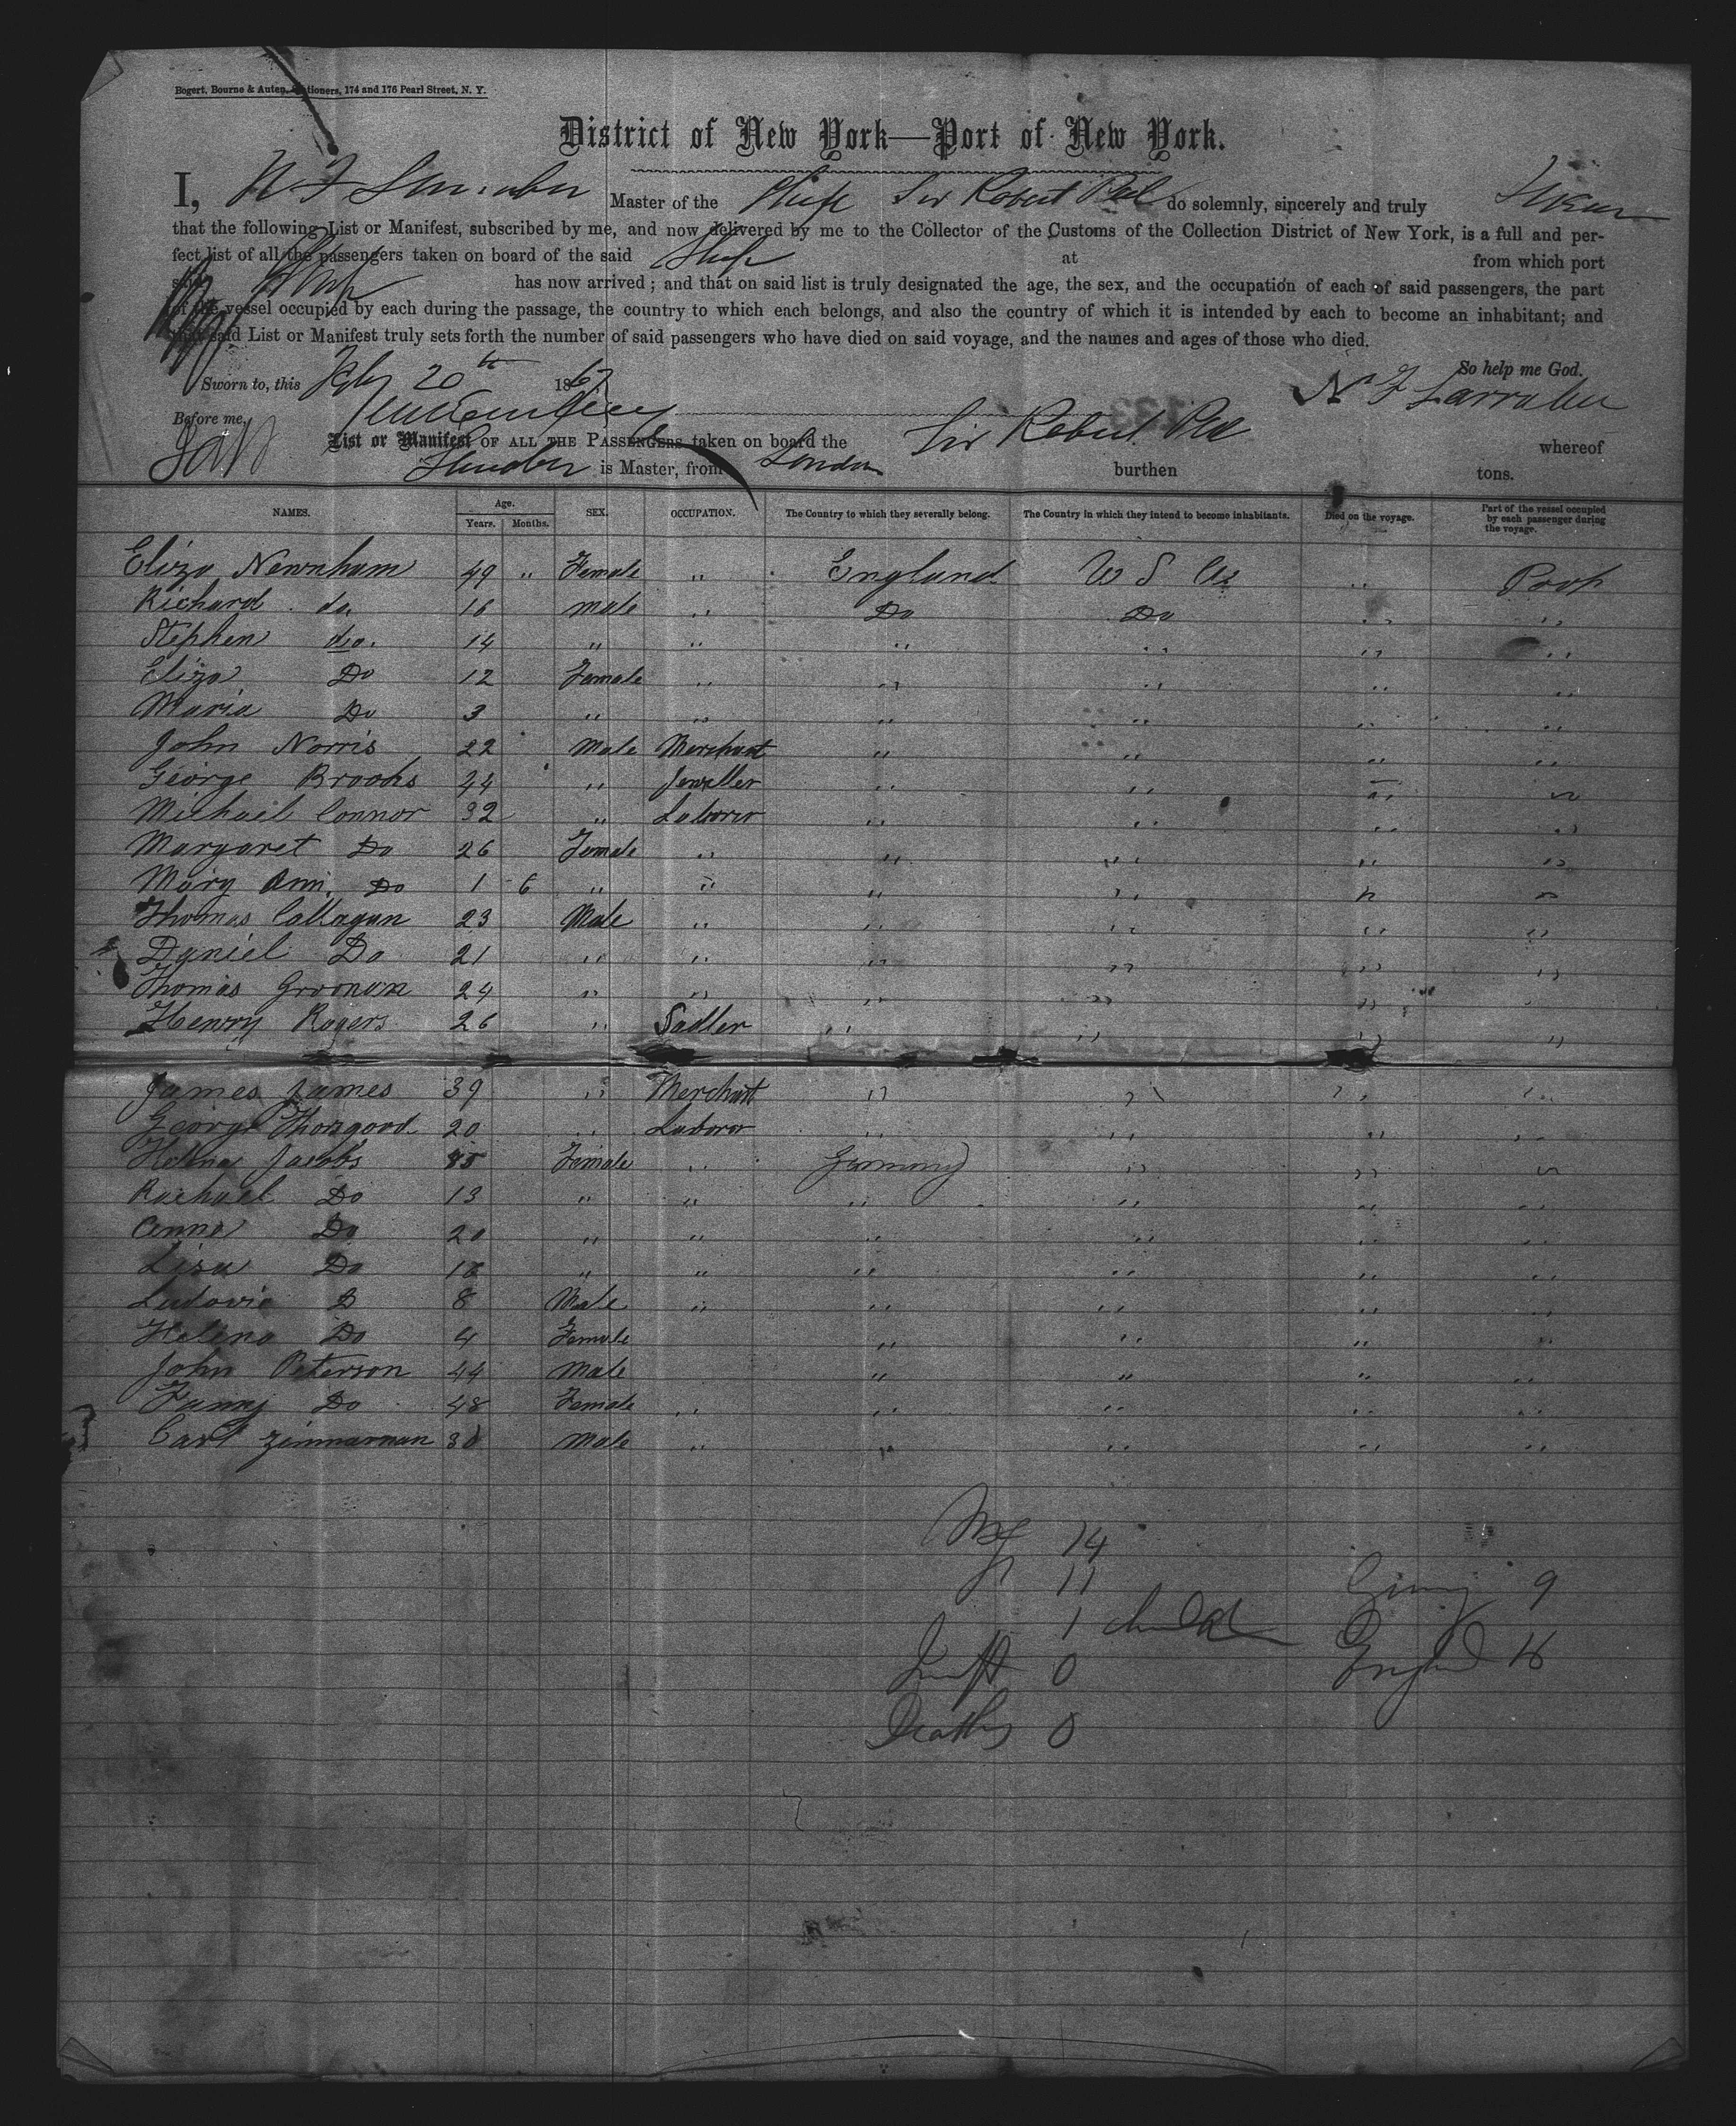 Bogert, Bourne & Auten, Stationers, 174 and 176 Pearl Street, N. Y.
District of New York—Port of New York.
I, N F Larrabee Master of the Ship Sir Robert Peel do solemnly, sincerely and truly Swear
that the following List or Manifest, subscribed by me, and now delivered by me to the Collector of the Customs of the Collection District of New York, is a full and per-
fect list of all the passengers taken on board of the said Ship at from which port
said Ship has now arrived; and that on said list is truly designated the age, the sex, and the occupation of each of said passengers, the part
of the vessel occupied by each during the passage, the country to which each belongs, and also the country of which it is intended by each to become an inhabitant; and
that said List or Manifest truly sets forth the number of said passengers who have died on said voyage, and the names and ages of those who died.
So help me God.
Sworn to, this 20th 1867 N F Larrabee
Before me,
List or Manifest OF ALL THE PASSENGERS taken on board the Sir Robert Peel whereof
is Master, from London burthen tons.
NAMES. Age. Years. Months. SEX. OCCUPATION. The Country to which they severally belong. The Country in which they intend to become inhabitants. Died on the voyage. Part of the vessel occupied by each passenger during the voyage.
Eliza Newnham 49 " Female " England U S " Poop
Richard do. 16 male " Do Do " "
Stephen do. 14 " " " " " "
Eliza Do 12 Female " " " " "
Maria Do 3 " " " " " "
John Norris 22 Male Merchant " " " "
George Brooks 24 " Jeweller " " " "
Michael Connor 32 " Laborer " " " "
Margaret Do 26 Female " " " " "
Mary Ann Do 1 6 " " " " " "
Thomas Callagan 23 Male " " " " "
Daniel Do 21 " " " " " "
Thomas Groonan 24 " " " " "
Henry Rogers 26 " Sadler " " " "
James James 39 " Merchant " " " "
George Thorogood 20 " Laborer " " " "
Helena Jacobs Female " Germany " " "
Rachael Do 13 " " " " " "
Anna Do 20 " " " " " "
Lisa Do " " " " " "
Ludovic D 8 Male " " " " "
Helena Do 4 Female " " " "
John Peterson 44 Male " " " "
Fanny Do 48 Female " " " " "
Carl Zimmerman 30 Male " " " " "
M 14
F 11 Germy 9
1 child England 16
Infts 0
Deaths 0